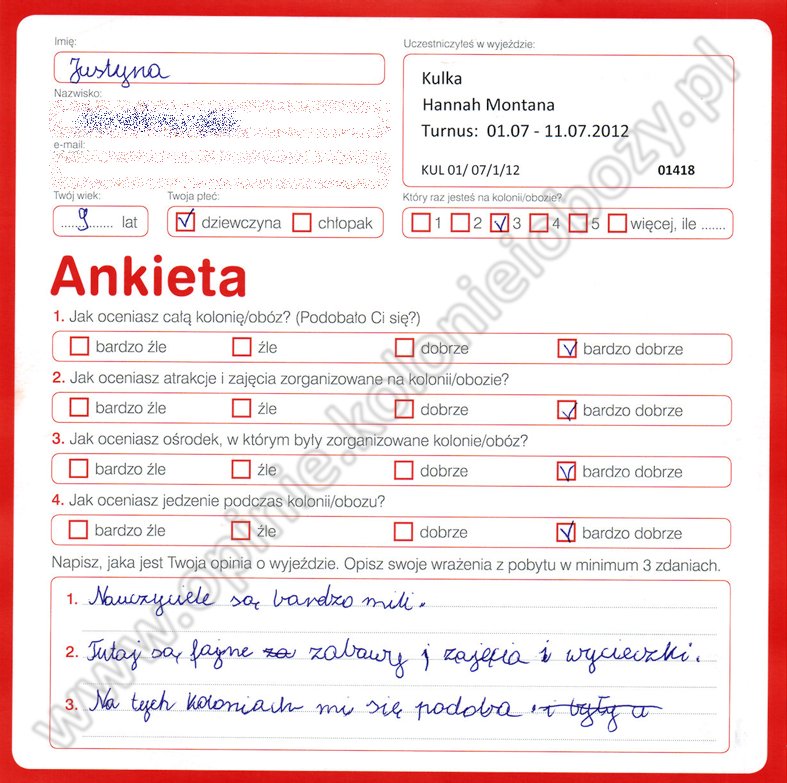 Imię:
Justyna
Uczestniczyłeś w wyjeździe:
Kulka
Hannah Montana
Turnus: 01.07 - 11.07.2012
KUL 01/ 07/1/12 01418
Nazwisko:
e-mail:
Twój wiek:
9 lat
Twoja płeć:
dziewczyna chłopak
Który raz jesteś na kolonii/obozie?
1 2 3 4 5 więcej, ile .......
Ankieta
1. Jak oceniasz całą kolonię/obóz? (Podobało Ci się?)
bardzo źle źle dobrze bardzo dobrze
2. Jak oceniasz atrakcje i zajęcia zorganizowane na kolonii/obozie?
bardzo źle źle dobrze bardzo dobrze
3. Jak oceniasz ośrodek, w którym były zorganizowane kolonie/obóz?
bardzo źle źle dobrze bardzo dobrze
4. Jak oceniasz jedzenie podczas kolonii/obozu?
bardzo źle źle dobrze bardzo dobrze
Napisz, jaka jest Twoja opinia o wyjeździe. Opisz swoje wrażenia z pobytu w minimum 3 zdaniach.
1. Nauczyciele są bardzo mili.
2. Tutaj są fajne za zabawy i zajęcia i wycieczki.
3. Na tych koloniach mi się podoba. i były u
www.opinie.kolonieiobozy.pl